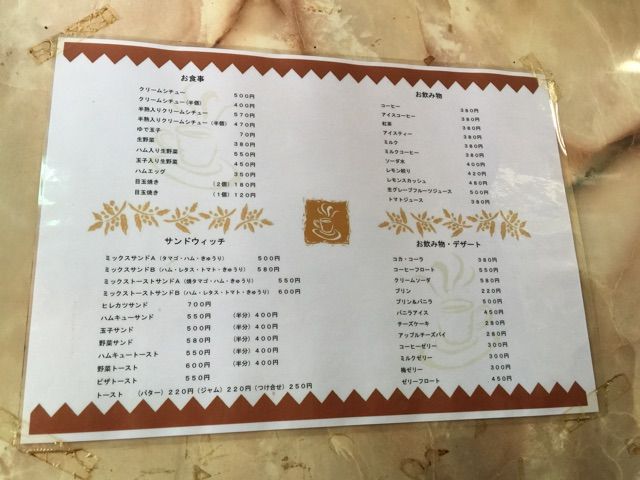 お食事
クリームシチュー 500円
クリームシチュー(半個) 400円
半熟入りクリームシチュー 570円
半熟入りクリームシチュー(半個) 470円
ゆで玉子 70円
生野菜 380円
ハム入り生野菜 550円
玉子入り生野菜 450円
ハムエッグ 350円
目玉焼き (2個) 180円
目玉焼き (1個) 120円
サンドウィッチ
ミックスサンドA (タマゴ・ハム・きゅうり) 500円
ミックスサンドB (ハム・レタス・トマト・きゅうり) 580円
ミックストーストサンドA (焼タマゴ・ハム・きゅうり) 550円
ミックストーストサンドB (ハム・レタス・トマト・きゅうり) 600円
ヒレカツサンド 700円
ハムキューサンド 550円 (半分) 400円
玉子サンド 550円 (半分) 400円
野菜サンド 580円 (半分) 400円
ハムキュートースト 550円 (半分) 400円
野菜トースト 600円 (半分) 400円
ピザトースト 550円
トースト (バター) 220円 (ジャム) 220円 (つけ合せ) 250円
お飲み物
コーヒー 380円
アイスコーヒー 380円
紅茶 380円
アイスティー 380円
ミルク 380円
ミルクコーヒー 380円
ソーダ水 400円
レモン絞り 420円
レモンスカッシュ 480円
生グレープフルーツジュース 500円
トマトジュース 380円
お飲み物・デザート
コカ・コーラ 380円
コーヒーフロート 550円
クリームソーダ 580円
プリン 220円
プリン&バニラ 500円
バニラアイス 450円
チーズケーキ 280円
アップルチーズパイ 260円
コーヒーゼリー 300円
ミルクゼリー 300円
梅ゼリー 300円
ゼリーフロート 450円